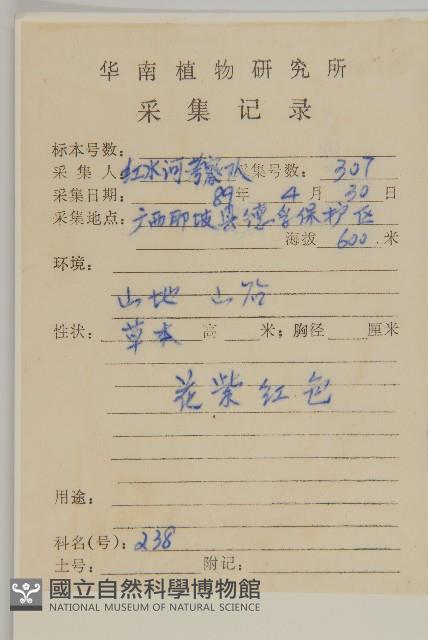 华南植物研究所
采集记录
标本号数:
采集人 红水河考察队 采集号数: 307
采集日期: 89年 4月 30日
采集地点: 广西那坡县德孚保护区
海拔 600 米
环境:
山地 山谷
性状: 草本 高 米; 胸径 厘米
花紫红色
用途:
科名(号): 238
土号: 附记:
國立自然科學博物館
NATIONAL MUSEUM OF NATURAL SCIENCE